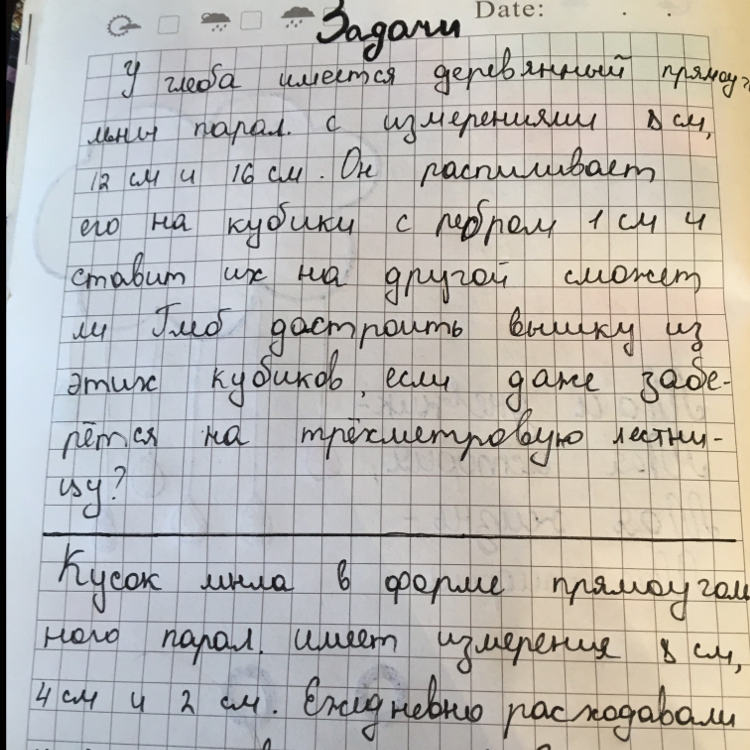 Date: . .
Задачи
У глеба имеется деревянный прямоуг
льны парал. с измерениями 8 см,
12 см и 16 см. Он распиливает
его на кубики с ребром 1 см и
ставит их на другой сможет
ли Глеб достроить вышку из
этих кубиков, если даже забе-
рётся на трёхметровую лестни-
цу?
Кусок мыла в форме прямоугол
ного парал. имеет измерения 8 см,
4 см и 2 см. Ежедневно расходавали